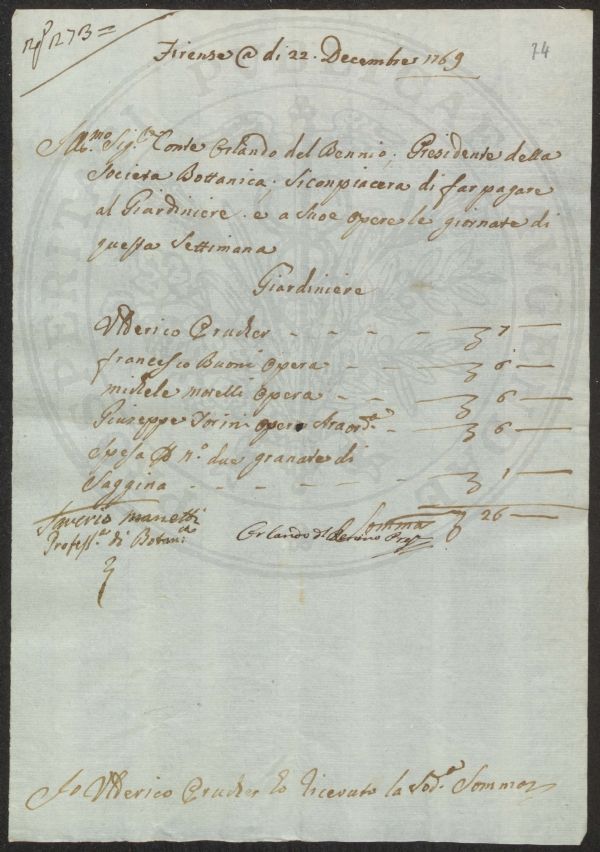 N.º 1273=
74
Firense @ di 22. Decembre 1769
Ill.mo Sig.re Conte Orlando del Bennio; Presidente della
Societa Bottanica; siconpiacera di far pagare
al Giardiniere. e a Suoe opere le giornate di
questa Settimana
Giardiniere
Ulderico Prucker - - - - 7
francesco Buoni Opera - - 6
michele morelli Opera - - 6
Giuseppe Forini opera straord.ª - 6
Spesa n.º due granate di
Saggina - - - - - - 1
Somma 26
Saverio Manetti
Profess.re di Botan.ca
Orlando del Benino Pre.
Io Ulderico Prucker ho ricevuto la Sod.ª Somma